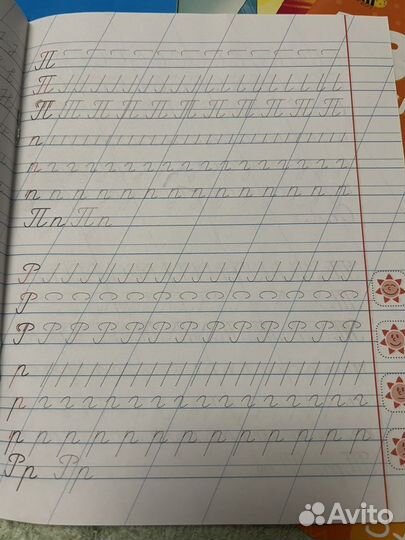 П
П
П П П П П П П П П П П П
п
п
п п п п п п п п п п п п
Пп Пп
Р
Р
Р Р Р Р Р Р Р Р Р Р Р Р Р
р
р
р р р р р р р р р р р р р
Рр Рр
Avito